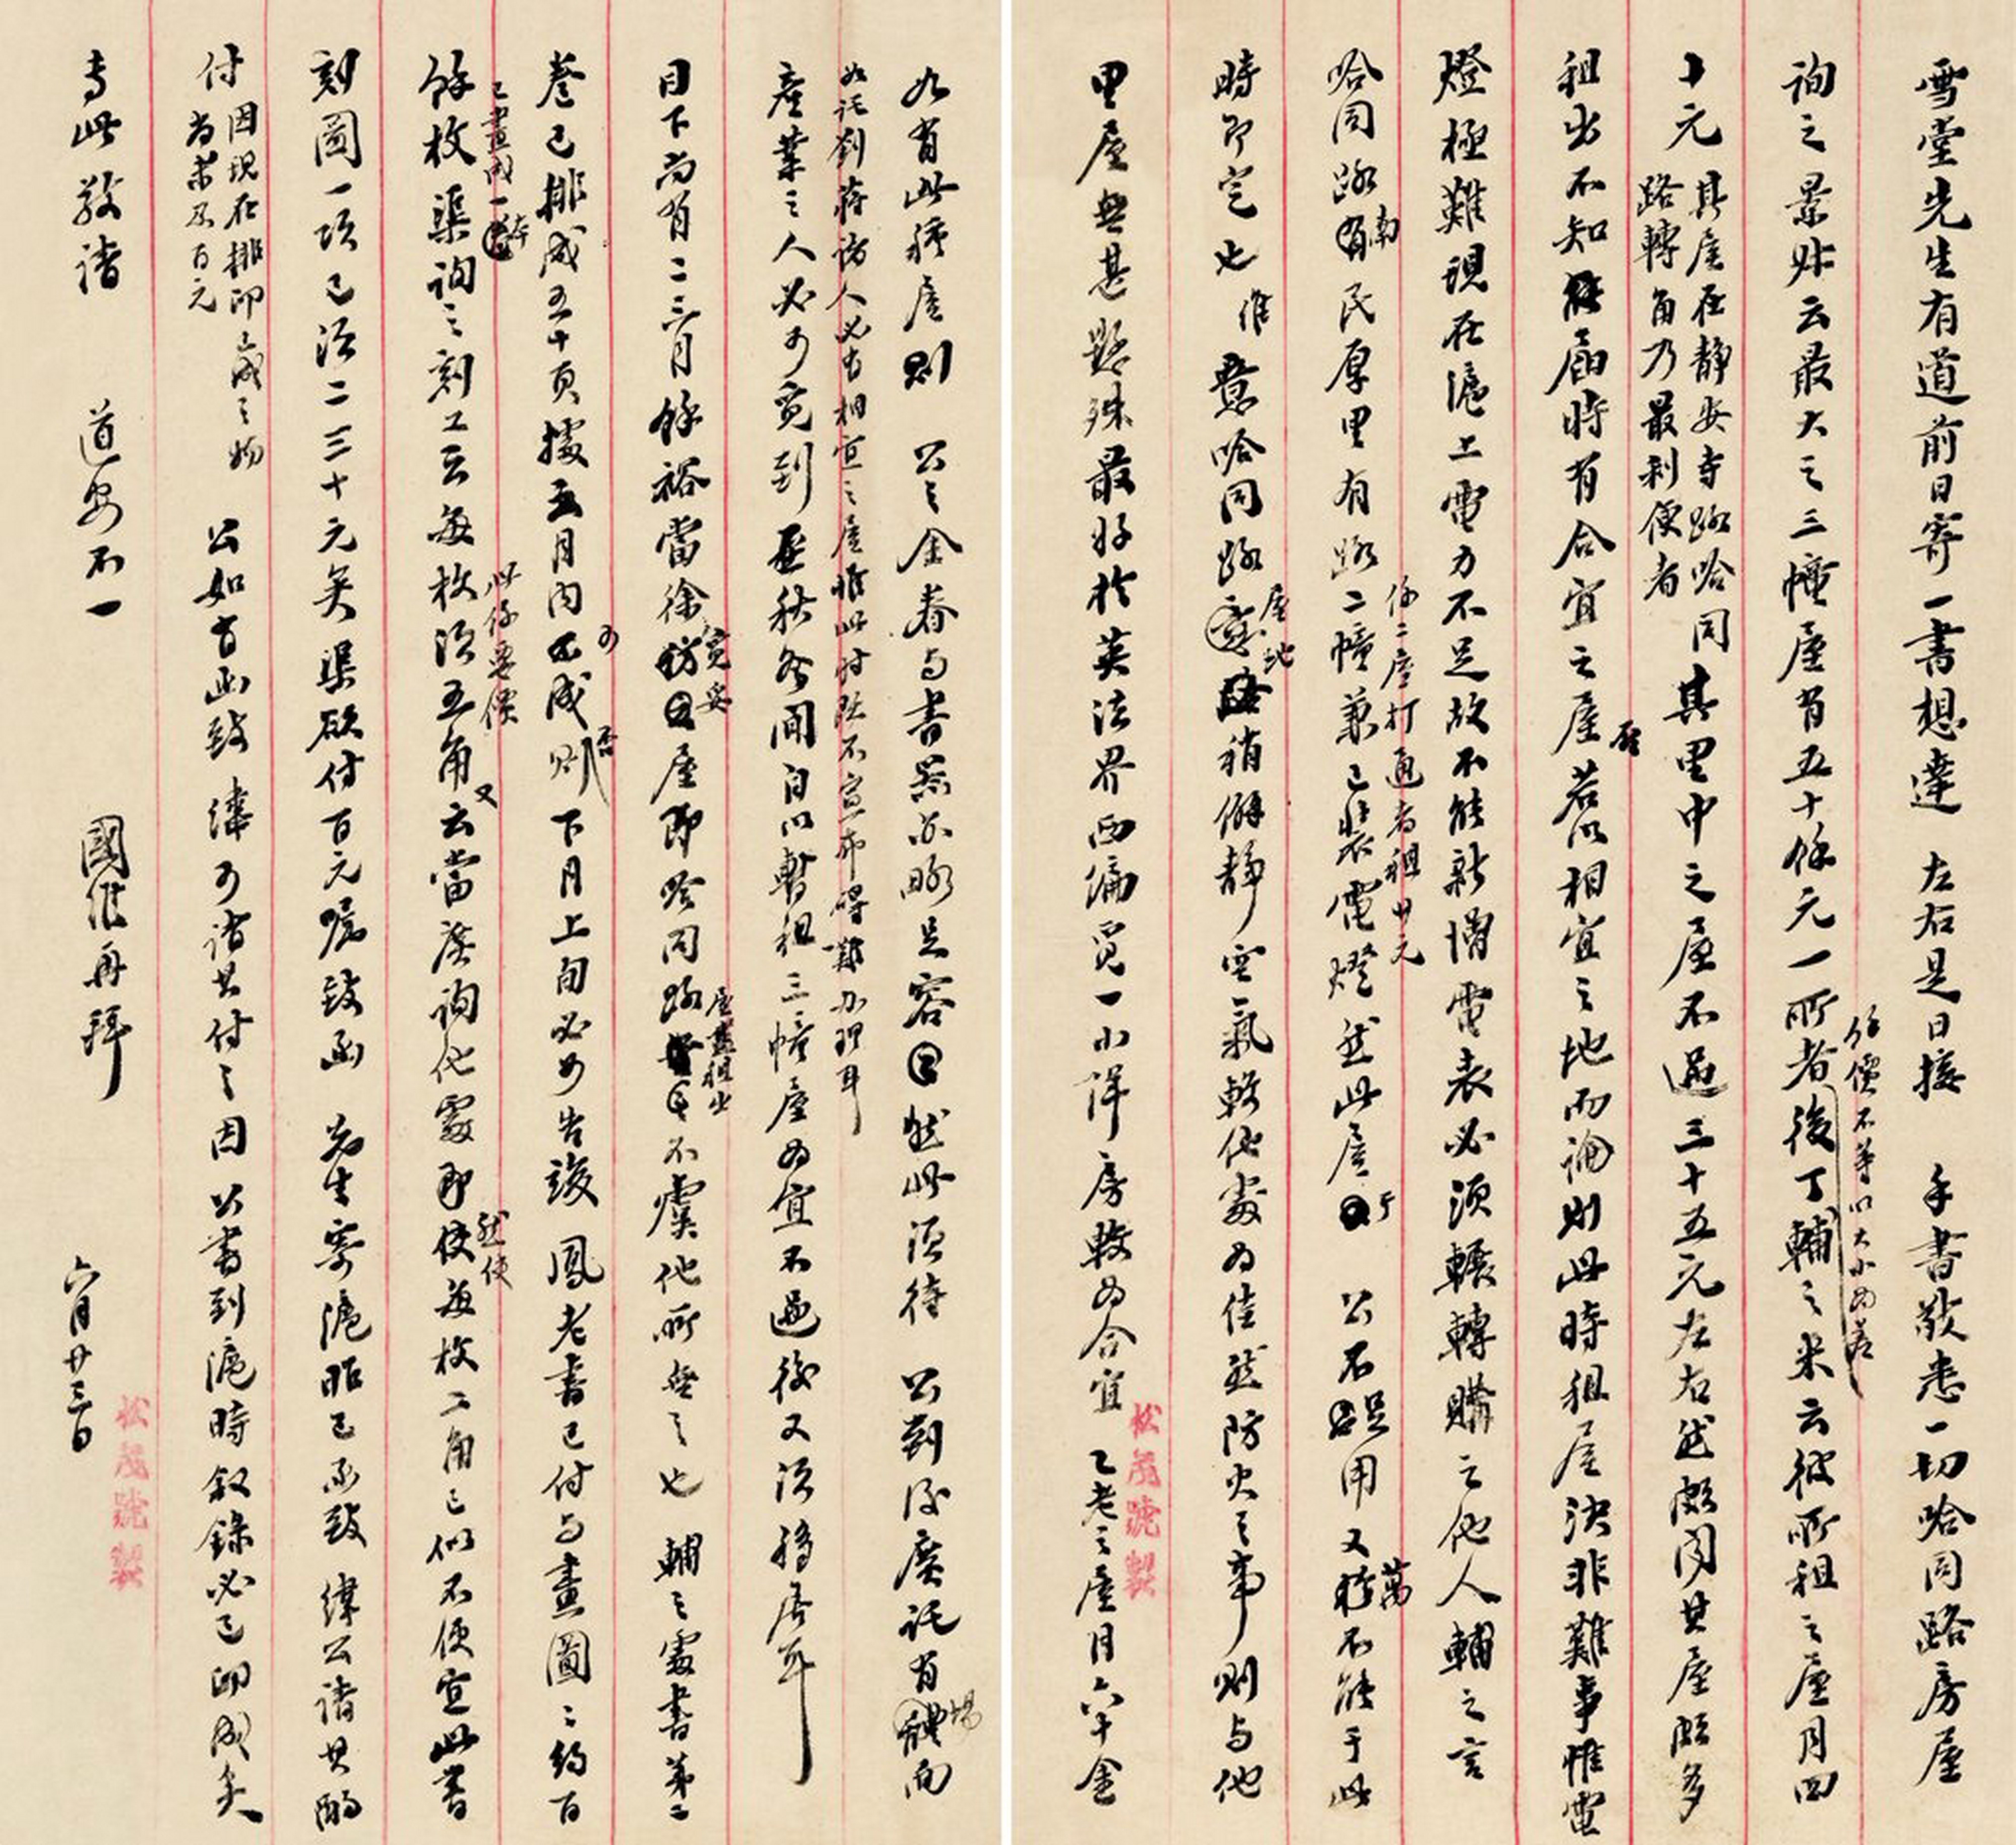 雪堂先生有道前日寄一書想達　左右是日接　手書敬悉一切哈同路房屋
詢之景叔云最大之三幢屋有五十餘元一所者後丁輔之來云彼所租之屋月四
餘價不等以大小為差
十元
其屋在靜安寺路哈同
路轉角乃最利便者
其里中之屋不過三十五元左右然頗聞其屋頗多
租出不知屆時有合宜之屋否若以相宜之地而論則此時租屋決非難事惟電
燈極難現在滬上電力不足故不能新增電表必須輾轉購之他人輔之言
哈同路南民厚里有路二幢兼已裝電燈然此屋于　公不足用又萬不能于此
係二屋打通者租廿元
時即定也惟意哈同路屋地稍僻靜空氣較他處為佳然防火之事則與他
里屋無甚懸殊最好於英法界西偏覓一小洋房較為合宜　乙老之屋月六十金
松茂號製
如有此種屋則　公之全眷與書籍亦略足容然此須待　公到後廣託有場面
如託劉蔣諸人必有相宜之屋惟此時既不宣布碍難辦理耳
產業之人必可覓到至秋冬間自以暫租三幢屋為宜不過後又須移居耳
目下尚有二三月餘裕當徐覓妥屋即哈同路屋盡租出不虞他所無之也　輔之處書第二
卷已排成五十頁據五月內可成否則下月上旬必可告竣　鳳老書已付與畫圖圖約百
餘枚已畫成一本渠詢之刻工云每枚須五角此係要價又云當廣詢他處即使每枚二角已似不便宜此書
然使
刻圖一項已須二三十元矣渠欲付百元囑致函　先生寄滬昨已函致　緯公請其酌
付
因現在排印成之物
尚未及百元
公如有函致　緯可請其付之因　公書到滬時敘錄必已印成矣
專此敬請　道安不一　國維再拜　六月廿三日
松茂號製